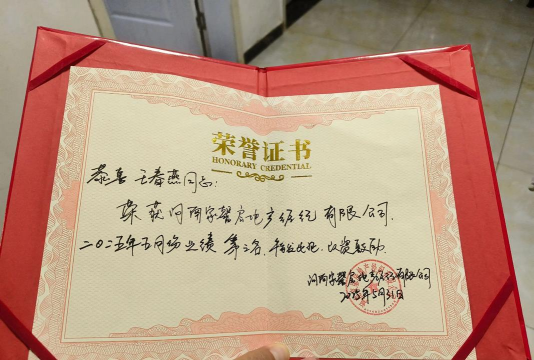 荣誉证书
HONORARY CREDENTIAL
恭喜 王春燕同志:
荣获河南宇馨房地产经纪有限公司.
二〇二五年五月份业绩 第二名. 特发此证. 以资鼓励.
河南宇馨房地产经纪有限公司
2025年5月31日